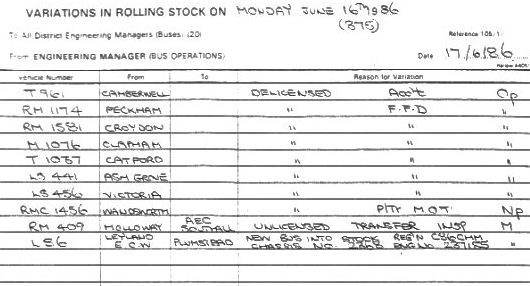 VARIATIONS IN ROLLING STOCK ON MONDAY JUNE 16TH 1986
(375)
To All District Engineering Managers (Buses) (20) Reference 106/1
From ENGINEERING MANAGER (BUS OPERATIONS) Date 17/6/86
Vehicle Number From To Reason for Variation
T961 CAMBERWELL DELICENSED Acc't Op
RM 1174 PECKHAM " F.F.D "
RM 1581 CROYDON " " "
M 1076 CLAPHAM " " "
T 1037 CATFORD " " "
LS 441 ASH GROVE " " "
LS 456 VICTORIA " " "
RMC 1456 WANDSWORTH " PIT/ M.O.T. Np
RM 409 HOLLOWAY AEC SOUTHALL UNLICENSED TRANSFER INSP M
L86 LEYLAND E.C.W PLUMSTEAD NEW BUS INTO STOCK REG'N C86CHM
CHASSIS NO. ENG NO.